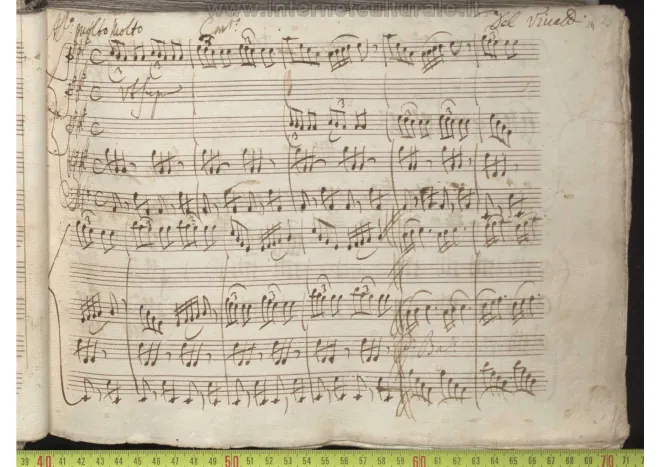 www.internetculturale.it
All.º molto Molto Con.to Del Vivaldi
Ut supra
39 40 41 42 43 44 45 46 47 48 49 50 51 52 53 54 55 56 57 58 59 60 61 62 63 64 65 66 67 68 69 70 71